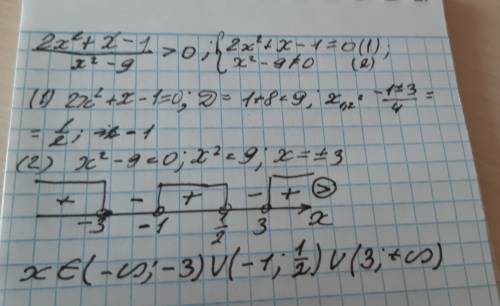 (2x²+x-1)/(x²-9) > 0 ; { 2x²+x-1=0 (1) ;
x²-9≠0 (2)
(1) 2x²+x-1=0; D = 1+8=9; x₁,₂ = (-1±3)/4 =
= 1/2; -1
(2) x²-9=0; x²=9; x=±3
+ - + - + >
-3 -1 1/2 3 x
x∈(-∞;-3)∪(-1;1/2)∪(3;+∞)